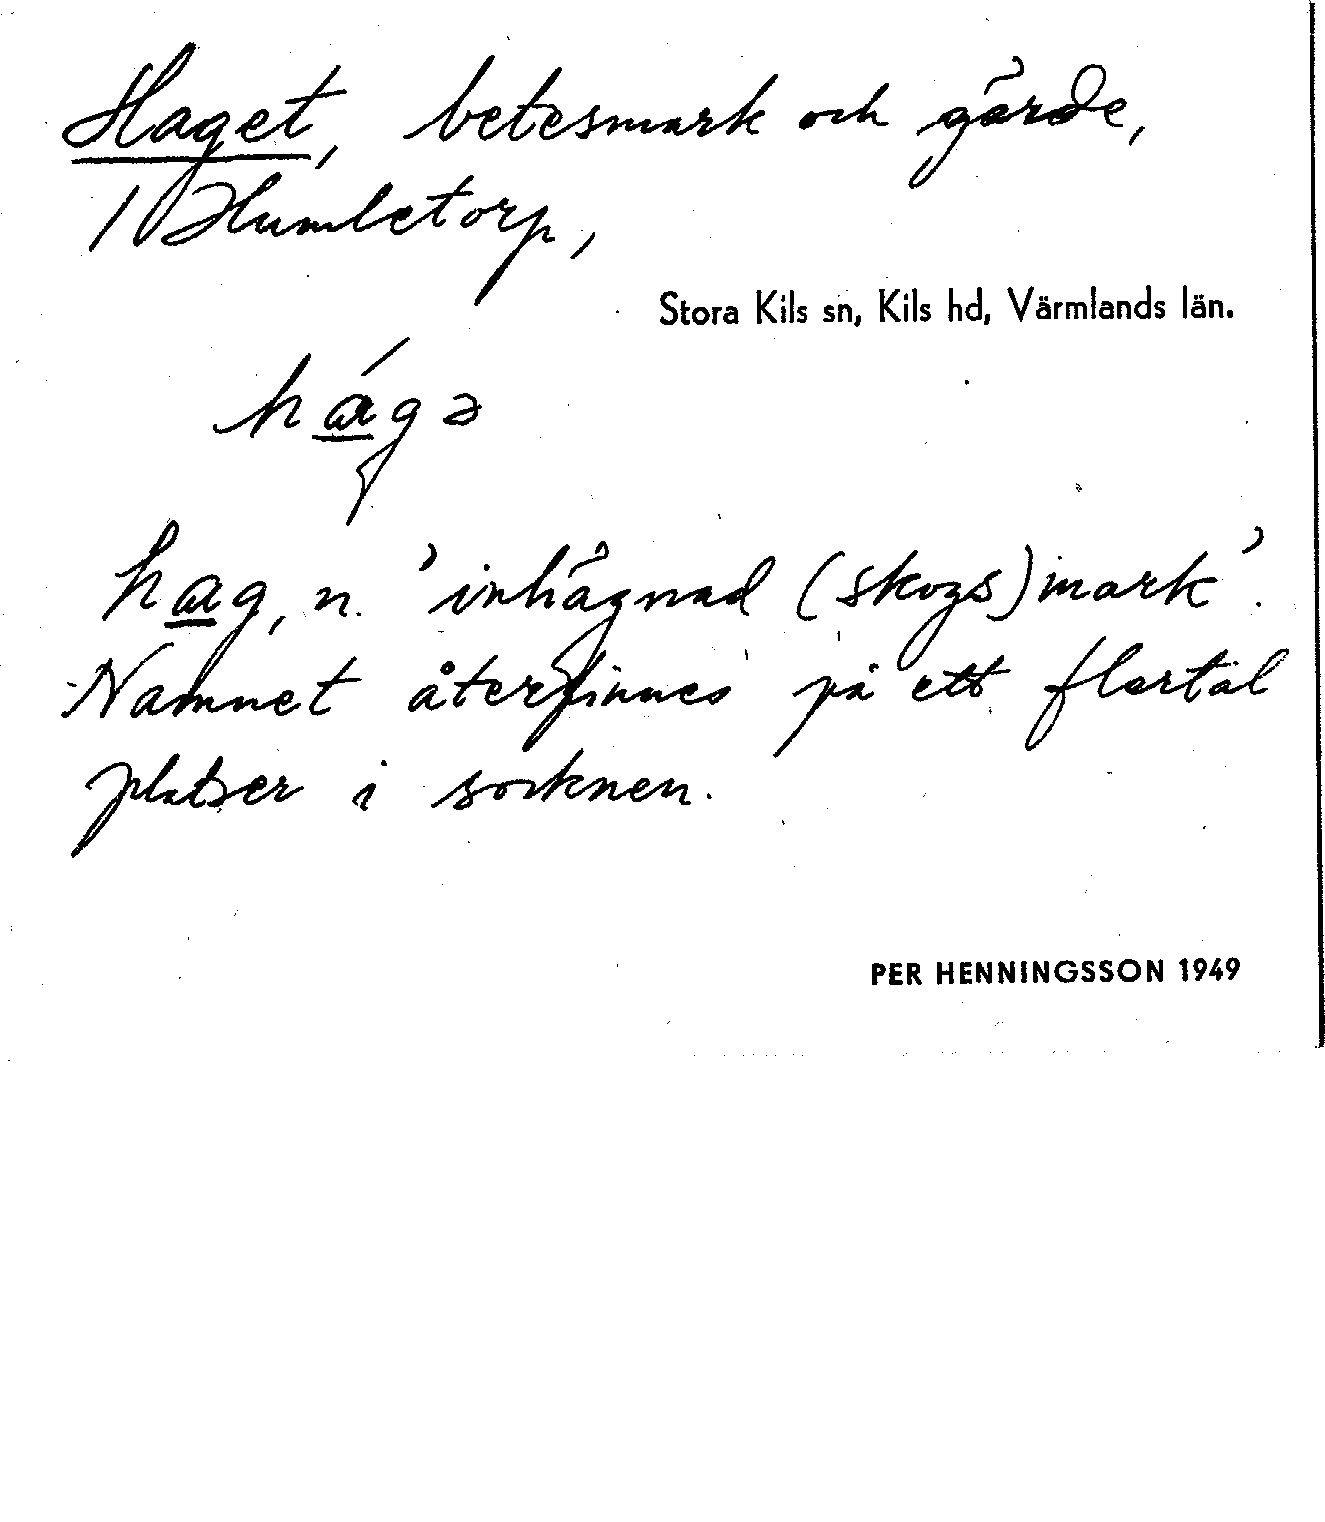 Haget, betesmark och gärde,
1 Humletorp,
Stora Kils sn, Kils hd, Värmlands län.
há̱gə
ha̱g, n. 'inhägnad (skogs)mark'.
Namnet återfinnes på ett flertal
platser i socknen.
PER HENNINGSSON 1949